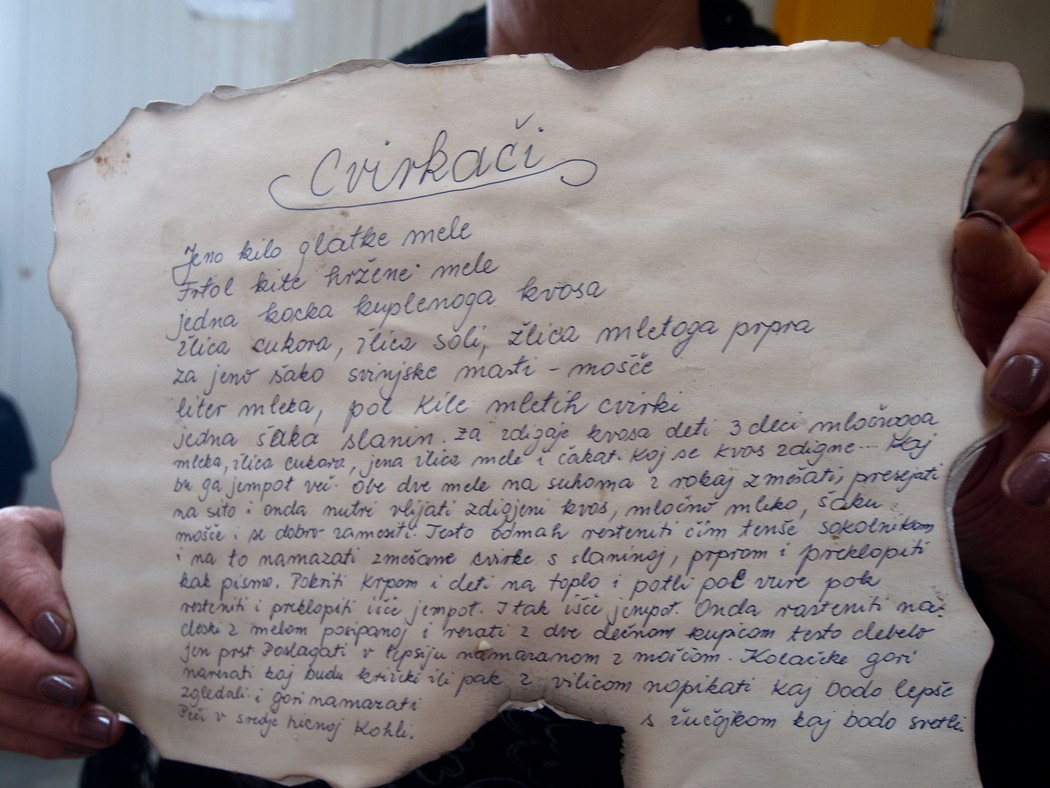 Cvirkači
Jeno kilo glatke mele
Frtol kile hržene mele
jedna kocka kuplenoga kvosa
žlica cukora, žlica soli, žlica mletoga prpra
za jeno šako svinjske masti - mošče
liter mleka, pol kile mletih cvirki
jedna šaka slanin. Za zdigaje kvosa deti 3 deci mločnoga
mleka, žlica cukora, jena žlica mele i čakat. Koj se kvos zdigne... Kaj
bu ga jempot već. Obe dve mele na suhoma z rokaj zmešati, presejati
na sito i onda nutri vlijati zdigjeni kvos, mločno mleko, šaku
mošče i se dobro zamesiti. Testo odmah resteniti čim tenše sokolnikom
i na to namazati zmešane cvirke s slaninoj, prprom i preklopiti
kak pismo. Pokriti krpom i deti na toplo i potli pol vure pak
resteniti i preklopiti išče jempot. I tak išče jempot. Onda rasteniti na
deski z melom posipanoj i rezati z dve dečnom kupicom testo debelo
jen prst. Poslagati v tepsiju namazanom z moščom. Kolačke gori
narezati koj budu križički ili pak z vilicom nopikati kaj bodo lepše
zgledali i gori namazati s žučójkom kaj bodo svetli.
Peči v srednje hicnoj Kohli.